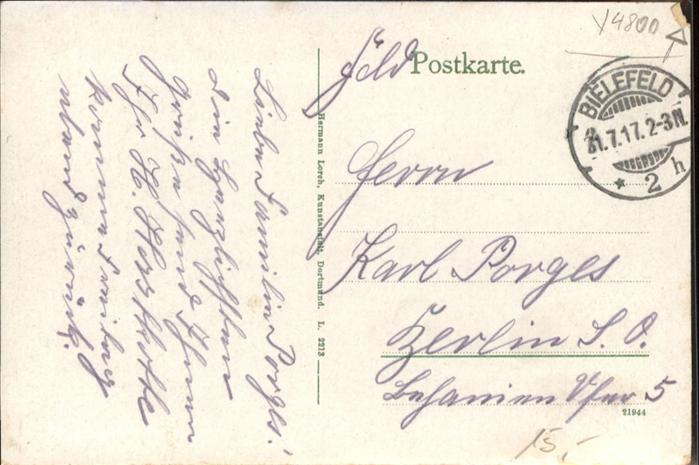 Y4800
Feld Postkarte.
BIELEFELD
31.7.17.2-3N.
* 2 h
Herrn
Karl Porges
Berlin S. O.
Bethanien Ufer 5
21944
15,-
Hermann Lorch, Kunstanstalt, Dortmund. L. 2273
Liebe Familie Porges!
die herzlichsten
Grüße sendt Ihnen
Ihr H. 
komme
abend zurück.